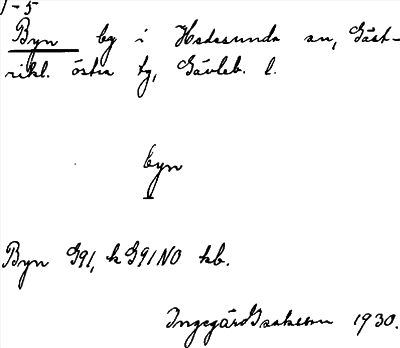 1-5
Byn by i Hedesunda sn, Gäst-
rikl. östra tg, Gävleb. l.
byn
Byn G91, k G91NO kb.
Ingegärd Isaksson 1930.